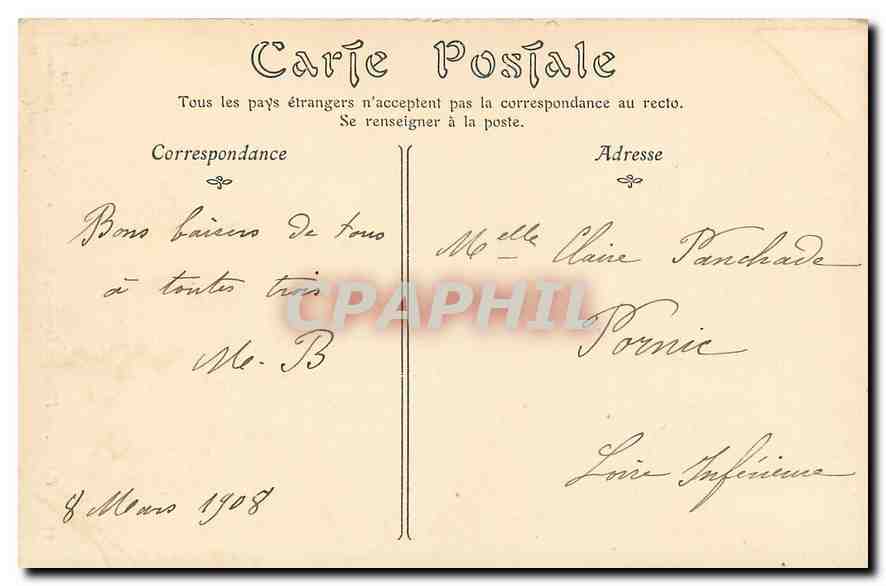 Carte Postale
Tous les pays étrangers n'acceptent pas la correspondance au recto.
Se renseigner à la poste.
Correspondance
Bons baisers de tous
à toutes trois
M. B
8 Mars 1908
Adresse
Melle Claire Panchade
Pornic
Loire Inférieure
CPAPHIL